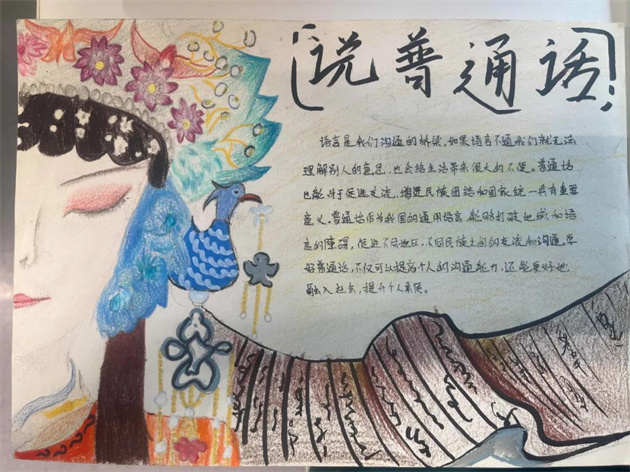 说普通话
语言是我们沟通的桥梁,如果语言不通我们就无法
理解别人的意思,也会给生活带来很大的不便。普通话
也能对于促进交流,增进民族团结和国家统一具有重要
意义。普通话作为我国的通用语言,能够打破地域和语
言的障碍,促进不同地区、不同民族之间的交流和沟通。学
好普通话,不仅可以提高个人的沟通能力,还能更好地
融入社会,提升个人素质。